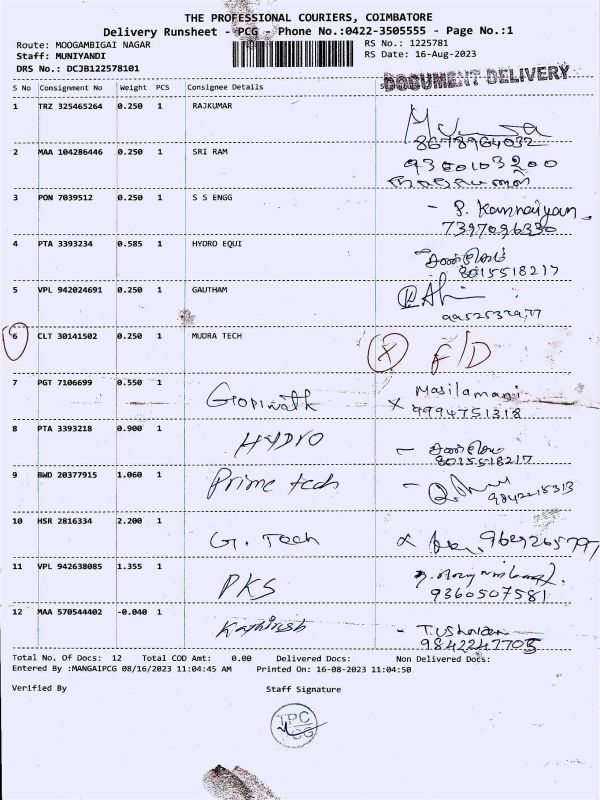 THE PROFESSIONAL COURIERS, COIMBATORE
Delivery Runsheet - PCG - Phone No.:0422-3505555 - Page No.:1
Route: MOOGAMBIGAI NAGAR RS No.: 1225781
Staff: MUNIYANDI RS Date: 16-Aug-2023
DRS No.: DCJB122578101
DOCUMENT DELIVERY
S No Consignment No Weight PCS Consignee Details
1 TRZ 325465264 0.250 1 RAJKUMAR
8678964032
2 MAA 104286446 0.250 1 SRI RAM 9360103200
3 PON 7039512 0.250 1 S S ENGG - P. Kannaiyan
7397096330
4 PTA 3393234 0.585 1 HYDRO EQUI
8015518217
5 VPL 942024691 0.250 1 GAUTHAM
6 CLT 30141502 0.250 1 MUDRA TECH F/D
7 PGT 7106699 0.550 1 Gopinath Masilamani
x 9994751318
8 PTA 3393218 0.900 1 HYDRO
8015518217
9 BWD 20377915 1.060 1 Prime tech
10 HSR 2816334 2.200 1 G. Tech
11 VPL 942638085 1.355 1 PKS
9360507581
12 MAA 570544402 -0.040 1
9842247705
Total No. Of Docs: 12 Total COD Amt: 0.00 Delivered Docs: Non Delivered Docs:
Entered By :MANGAIPCG 08/16/2023 11:04:45 AM Printed On: 16-08-2023 11:04:50
Verified By Staff Signature
TPC